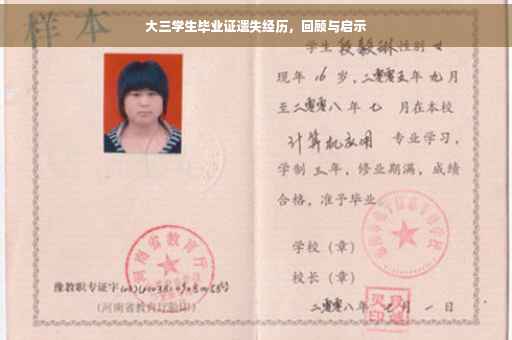 大三学生毕业证遗失经历，回顾与启示
样本
学生 段毅琳 性别 女
现年 16 岁，二零零五年 九 月
至二零零八年 七 月在本校
计算机应用 专业学习，
学制 三 年，修业期满，成绩
合格，准予毕业
学校（章）
校长（章）
二零零八年 七 月 一 日
河南省教育厅
豫教职专证字
（河南省教育厅验印）